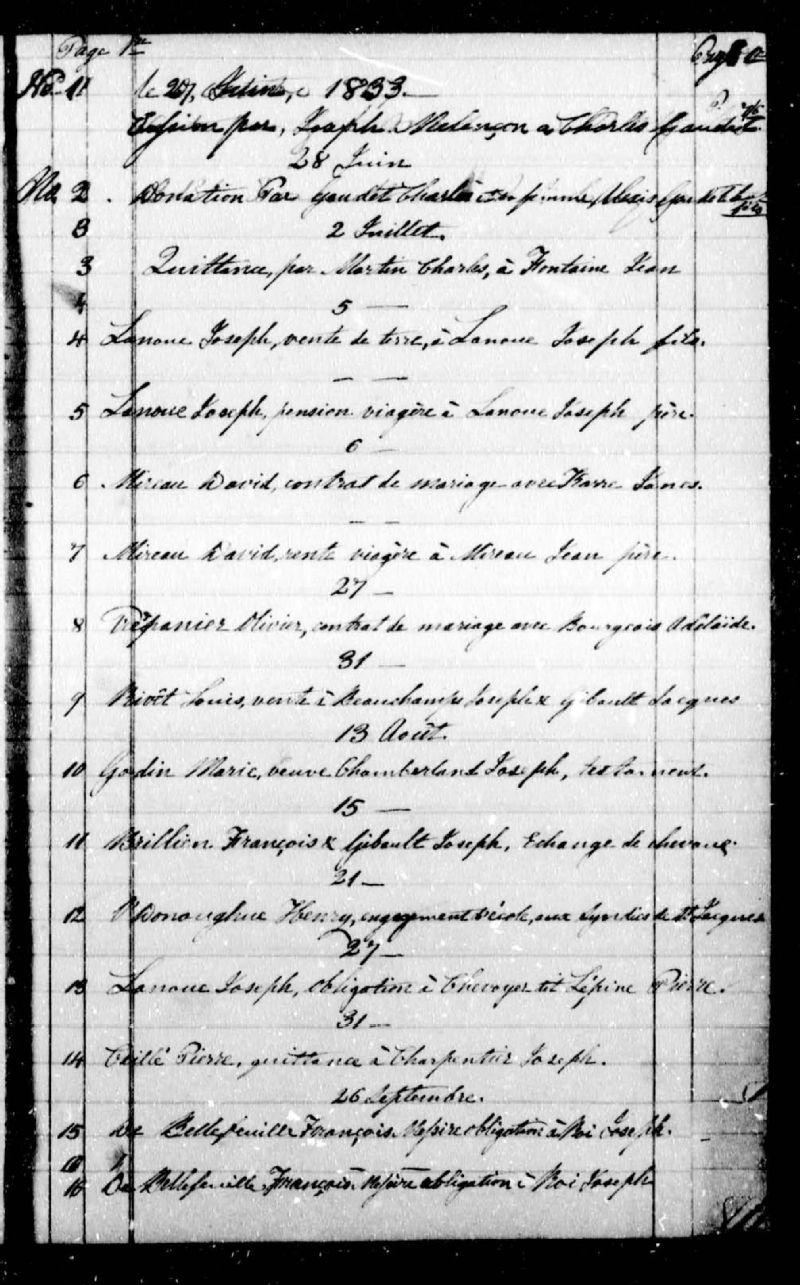 Page 1re
No. 1 le 27, Juin, 1833.—
Cession par, Joseph Melançon a Charles Gaudet
28 Juin
No. 2. Donation Par Gaudet Charles et sa femme, Alexis Gaudet fils
3 2 Juillet.
3 Quittance, par Martin Charles, à Fontaine Jean
4 5 —
4 Lanoue Joseph, vente de terre, à Lanoue Joseph fils.
— —
5 Lanoue Joseph, pension viagère à Lanoue Joseph père.
6 —
6 Mireau David, contrat de mariage avec
— —
7 Mireau David, rente viagère à Mireau Jean père.
27 —
8 Trépanier Olivier, contrat de mariage avec Bourgeois Adélaïde.
31 —
9 Rivêt Louis, vente à Beauchamps Joseph & Gibault Jacques
13 Août.
10 Godin Marie, veuve Chamberland Joseph, testament.
15 —
11 Brillien François & Gibault Joseph, Echange de chevaux.
21 —
12 O'Donoughue Henry, engagement d'école, aux Syndics de St Jacques
27 —
13 Lanoue Joseph, obligation à Chevoyer dit Lépine Pierre.
31 —
14 Pierre, quittance à Charpentier Joseph.
26 Septembre.
15 De Bellefeuille François Lefaivre obligation à Roi Joseph.
16 De Bellefeuille François obligation à Roi Joseph